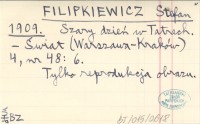 FILIPKIEWICZ Stefan
1909. Szary dzień w Tatrach.
– Świat (Warszawa-Kraków)
4, nr 48: 6.
Tylko reprodukcja obrazu.
BZ